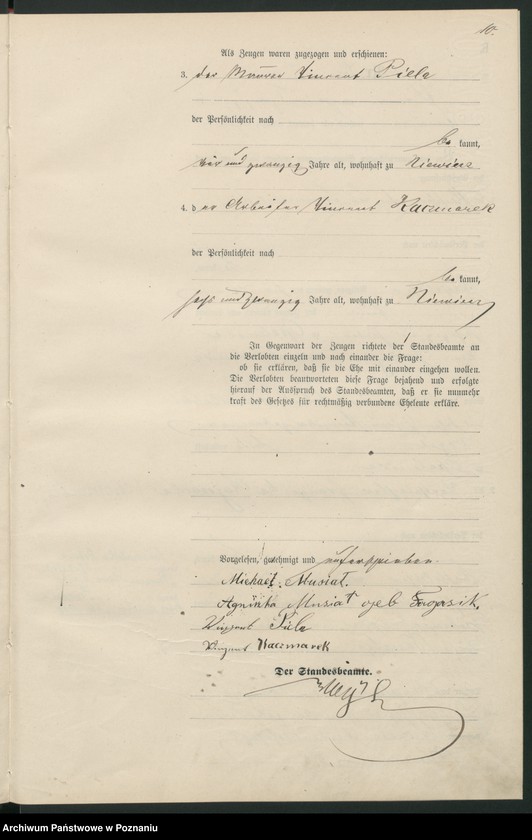 10.
Als Zeugen waren zugezogen und erschienen:
3. der Maurer Vincent Piele
der Persönlichkeit nach
be kannt,
vier und zwanzig Jahre alt, wohnhaft zu Niewierz
4. der Arbeiter Vincent Kaczmarek
der Persönlichkeit nach
be kannt,
sechs und zwanzig Jahre alt, wohnhaft zu Niewierz
In Gegenwart der Zeugen richtete der Standesbeamte an
die Verlobten einzeln und nach einander die Frage:
ob sie erklären, daß sie die Ehe mit einander eingehen wollen.
Die Verlobten beantworteten diese Frage bejahend und erfolgte
hierauf der Ausspruch des Standesbeamten, daß er sie nunmehr
kraft des Gesetzes für rechtmäßig verbundene Eheleute erkläre.
Vorgelesen, genehmigt und unterschrieben.
Michael Musiat.
Musiat geb
Piele
Kaczmarek
Der Standesbeamte.
Archiwum Państwowe w Poznaniu